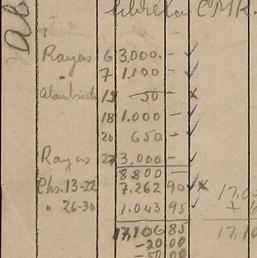 libreta CMR.
Ab
Rayas 6 3,000. -
" 7 1.100 -
19 50 -
18 1.000 -
20 650 -
Rayas 27 3,000 -
8.800 -
Chs. 13-22 7.262 90
" 26-30 1.043 95
17,106 85
-20.00
-50.00